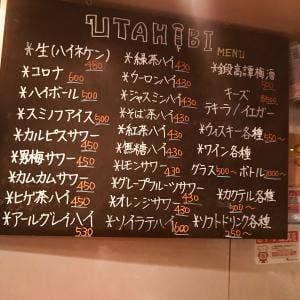 UTAHiBI MENU
*生(ハイネケン) 450
*コロナ 600
*ハイボール 500
*スミノフアイス 500
*カルピスサワー 450
*男梅サワー 450
*カムカムサワー 450
*ヒゲ茶ハイ 450
*アールグレイハイ 530
*緑茶ハイ 430
*ウーロンハイ 430
*ジャスミンハイ 430
*そば茶ハイ 430
*紅茶ハイ 430
*黒糖ハイ 430
*レモンサワー 430
*グレープフルーツサワー 430
*オレンジサワー 430
*ソイラテハイ 500
*鍛高譚梅酒
キーズ 500
テキーラ/イエガー
*ウィスキー各種 550〜
*ワイン各種
グラス500〜 ボトル2000〜
*カクテル各種 500〜
*ソフトドリンク各種 250〜